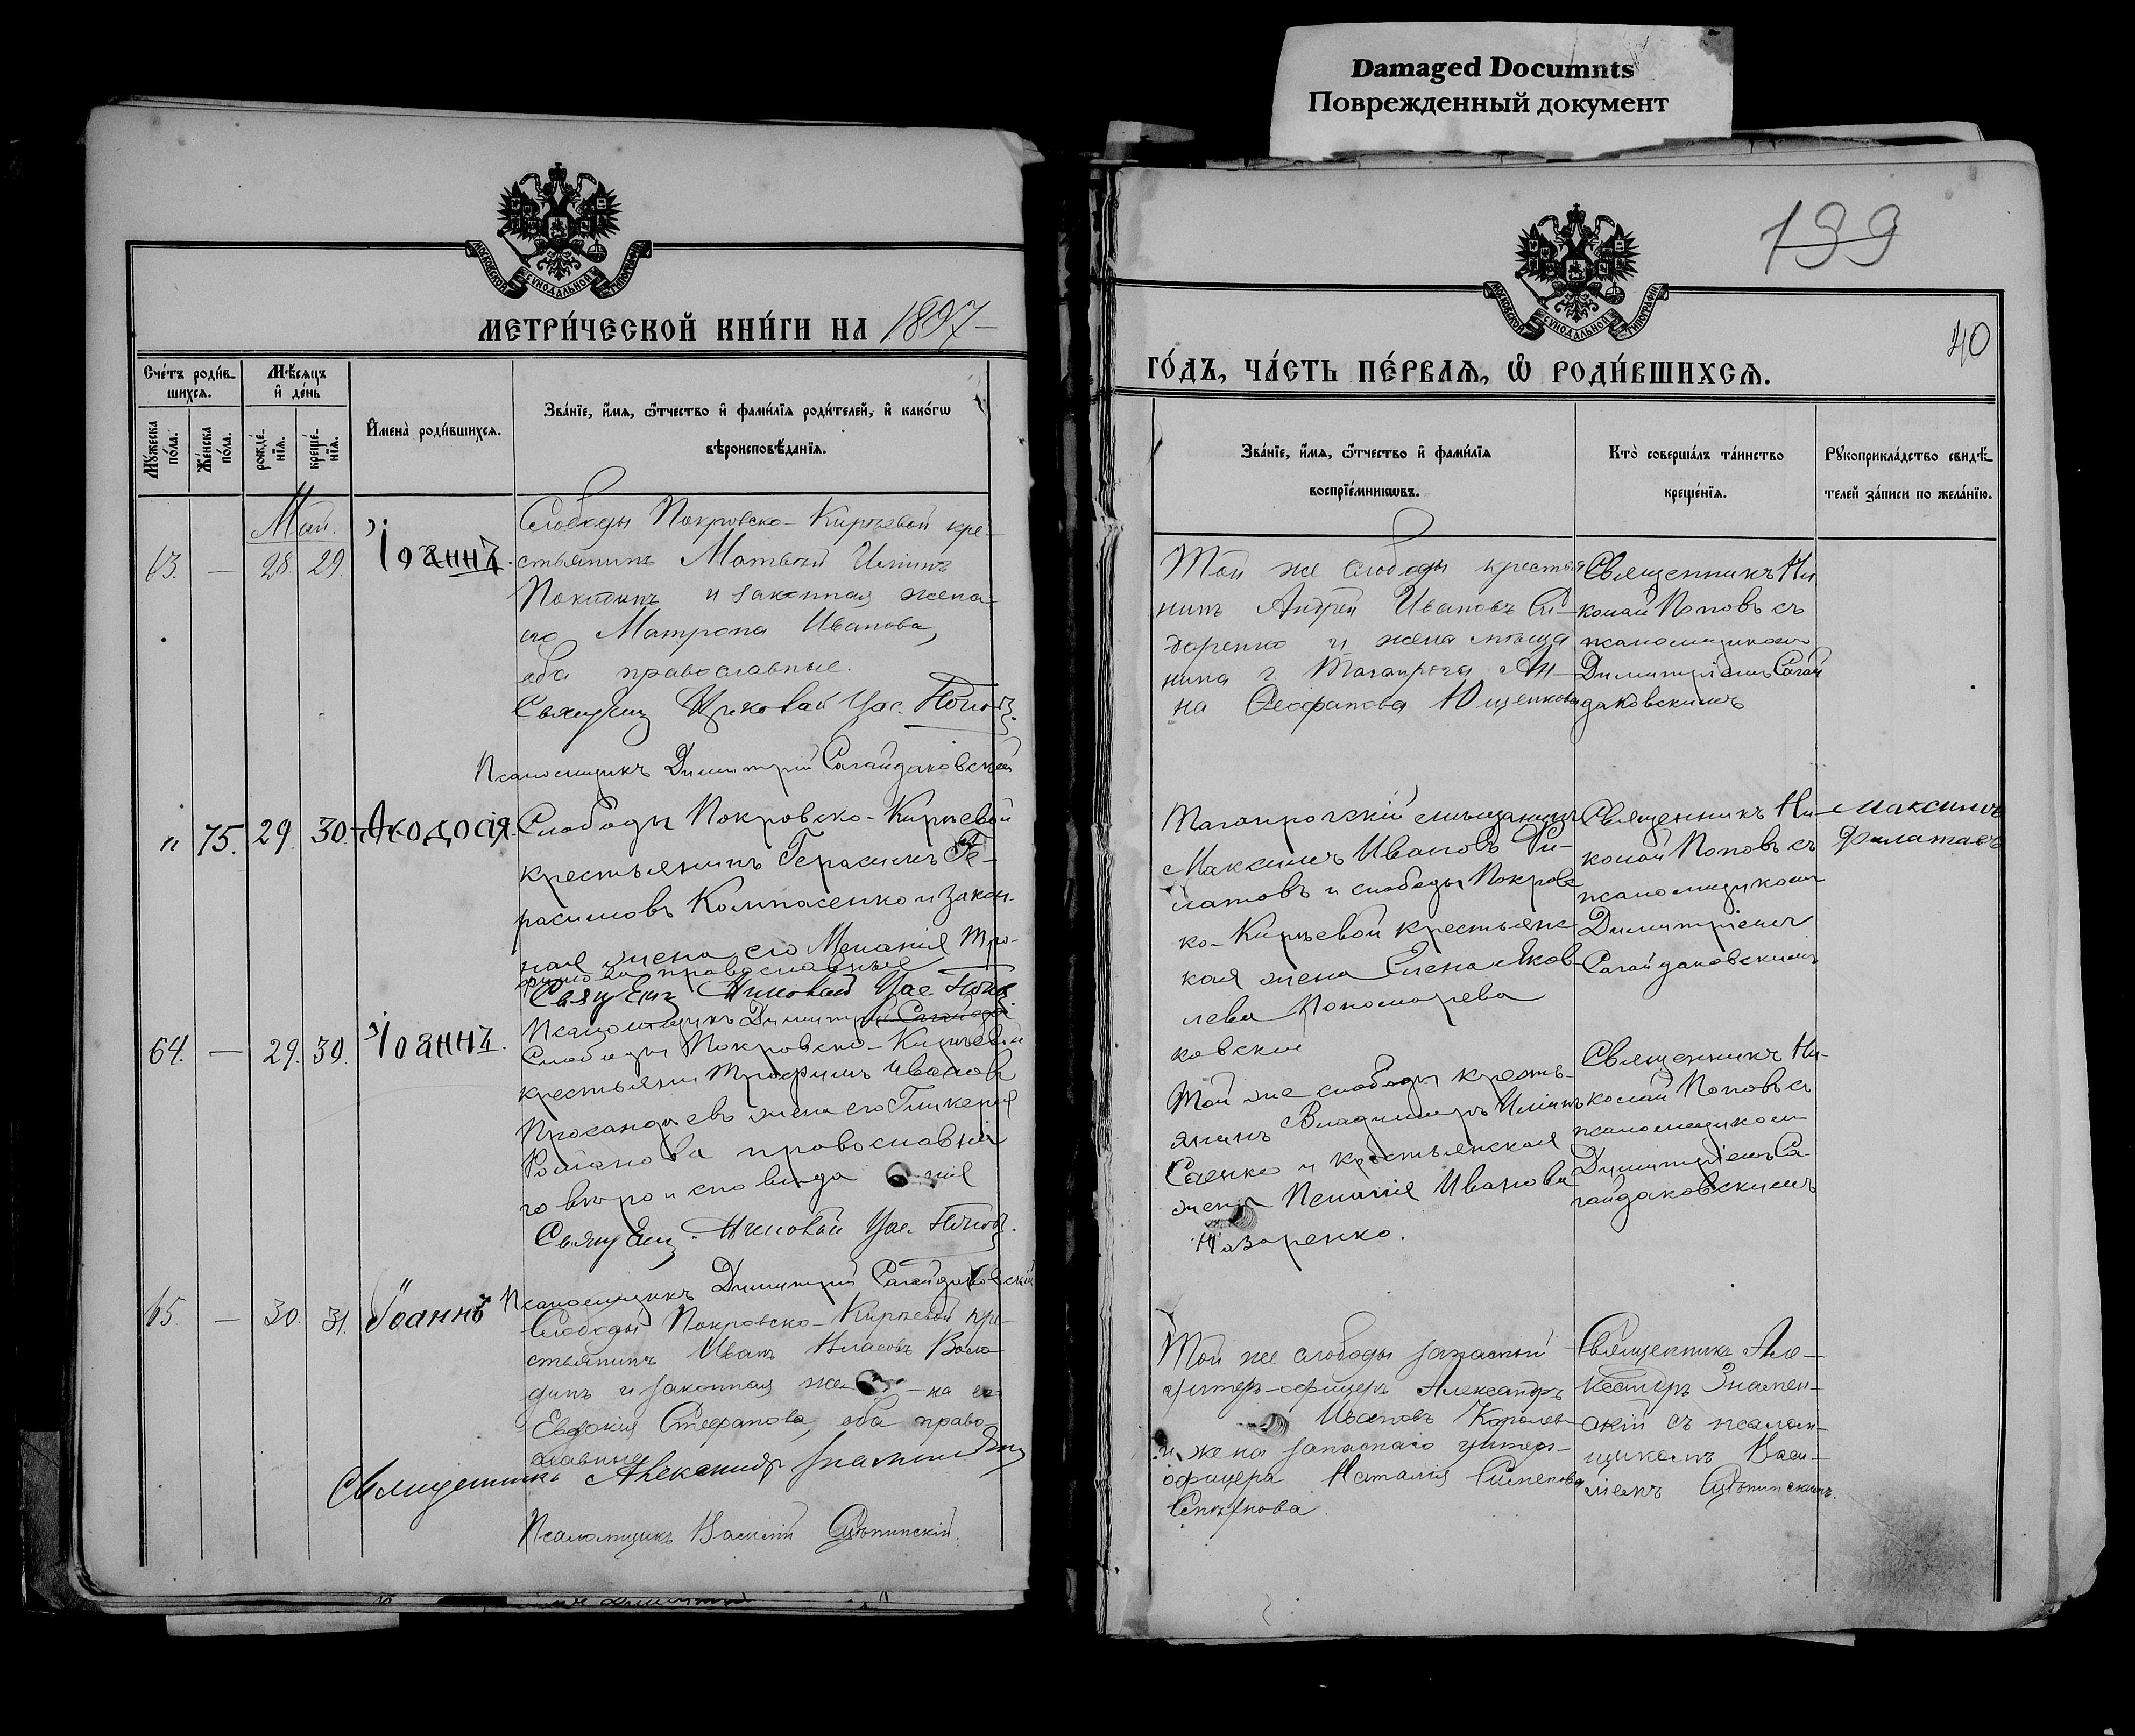 Damaged Documnts
Поврежденный документ
МОСКОВСКОЙ СѴНОДАЛЬНОЙ ТИПОГРАФІИ
МЕТРИ́ЧЕСКОЙ КНИ́ГИ НА 1897
Сче́тъ роди́в-
шихся.
Мѣ́сяцъ
и҆ де́нь
Мꙋ́жеска
по́ла.
Же́нска
по́ла.
рожде́-
нїя.
креще́-
нїя.
И҆мена̀ роди́вшихся.
Зва́нїе, и҆́мя, ѻ҆́тчество и҆ фами́лїя роди́телей, и҆ како́гѡ
вѣроисповѣ́данїя.
Май.
63. — 28. 29. Іоаннъ.
Слободы Покровско-Кирѣевой кре-
стьянинъ Матвѣй Ильинъ
и законная жена
его Матрона Иванова,
оба православные.
Священ. Николай Поповъ.
Псаломщикъ Димитрій Сагайдаковскій
" 75. 29. 30. Ѳеодосія.
Слободы Покровско-Кирѣевой
крестьянинъ Герасимъ Ге-
расимовъ и закон-
ная жена его Меланія Тро-
фимова православные
Священ. Николай Поповъ
Псаломщикъ Димитрій Сагайда
64. — 29. 30. Іоаннъ.
Слободы Покровско-Кирѣевой
крестьянинъ Трофимъ Ивановъ
жена его Гликерія
Романова православна
го вѣроисповѣда нія
Священ. Николай Поповъ.
Псаломщикъ Димитрій Сагайдаковскій
65. — 30. 31. Іоаннъ
Слободы Покровско-Кирѣевой кре-
стьянинъ Иванъ Власовъ Воло-
динъ и законная же-на его
Евдокія Стефанова, оба право-
славные.
Священникъ Александръ
Псаломщикъ Василій
199
40
МОСКОВСКОЙ СѴНОДАЛЬНОЙ ТИПОГРАФІИ
ГО́ДЪ, ЧА́СТЬ ПЕ́РВАѦ, Ѡ҆ РОДИ́ВШИХСѦ.
Зва́нїе, и҆́мя, ѻ҆́тчество и҆ фами́лїя
воспрїе́мникѡвъ.
Кто̀ соверша́лъ та́инство
креще́нїя.
Рꙋкоприкла́дство свидѣ́-
телей за́писи по жела́нїю.
Той же слободы крестья
нинъ Андрей Ивановъ Си-
доренко и жена мѣща
нина г. Таганрога Ан-
на Ѳеофанова Ющенкова
Священникъ Ни
колай Поповъ съ
псаломщикомъ
Димитріемъ Сагай
даковскимъ
Таганрогскій мѣщанинъ
Максимъ Ивановъ Фи-
латовъ и слободы Покровс
ко-Кирѣевой крестьянс
кая жена Елена Яков-
лева Пономарева
ковскій
Священникъ Ни-
колай Поповъ съ
псаломщикомъ
Димитріемъ
Сагайдаковскимъ
Максимъ
Филатовъ
Той же слободы кресть-
янинъ Владимиръ Ильинъ
Саенко и крестьянская
жена Пелагія Иванова
Назаренко.
Священникъ Ни-
колай Поповъ съ
псаломщикомъ
Димитріемъ Са-
гайдаковскимъ
Той же слободы запасный
унтеръ-офицеръ Александръ
Ивановъ Королев
и жена запаснаго унтеръ-
офицера Наталія Симеонова
Священникъ Але-
ксандръ Знамен-
скій съ псалом-
щикомъ Васи-
ліемъ